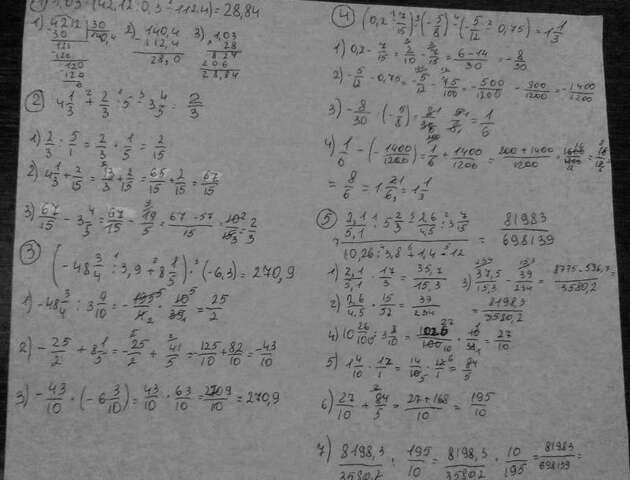 1) 1,03 · (42,12 : 0,3 - 112,4) = 28,84
1) 42,12 | 30
2) 140,4
112,4
28,0
3) 1,03
28
824
206
28,84
② 4 1/3 + 2/3 : 5 - 3 4/5 = 2/3
1) 2/3 : 5/1 = 2/3 · 1/5 = 2/15
2) 4 1/3 + 2/15 = 13/3 + 2/15 = 65/15 + 2/15 = 67/15
3) 67/15 - 3 4/5 = 67/15 - 19/5 = 67-57/15 = 10/15 = 2/3
③ (-48 3/4 : 3,9 + 8 1/5) · (-6,3) = 270,9
1) -48 3/4 : 3 9/10 = - 195/4 · 10/39 = 25/2
2) - 25/2 + 8 1/5 = - 25/2 + 41/5 = 125/10 + 82/10 = -43/10
3) - 43/10 · (-6 3/10) = 43/10 · 63/10 = 2709/10 = 270,9
④ (0,2 - 7/15) · (-5/8) - (-5/12 - 0,75) = 1 1/3
1) 0,2 - 7/15 = 2/10 - 7/15 = 6-14/30 = - 8/30
2) - 5/12 - 0,75 = - 5/12 - 75/100 = -500/1200 - 900/1200 = -1400/1200
3) - 8/30 · (-5/8) = 1/6
4) 1/6 - (- 1400/1200) = 1/6 + 1400/1200 = 200+1400/1200 =
= 8/6 = 1 2/6 = 1 1/3
⑤ 2,1/5,1 : 5 2/3 - 2,6/4,5 : 3 7/15
10,26 : 3,8 + 1,4 · 12
= 81983/698139
1) 2,1/5,1 · 17/3 = 35,7/15,3
2) 2,6/4,5 · 15/52 = 39/234
= 8198,3/3580,2
4) 10 26/100 : 3 8/10 = 1026/100 · 10/38 = 27/10
5) 1 4/10 · 12/1 = 14/10 · 12/1 = 84/5
6) 27/10 + 84/5 = 27+168/10 = 195/10
7) 8198,3/3580,2 : 195/10 = 8198,3/3580,2 · 10/195 = 81983/698139 =